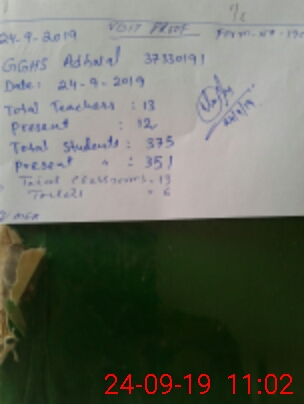 VISIT PROOF
24-9-2019
GGHS Adhwal 37330191
Date: 24-9-2019
Total Teachers : 13
Present : 12
Total Students : 375
Present " : 351
Total Classrooms - 13
Toilets = 6
24-09-19 11:02